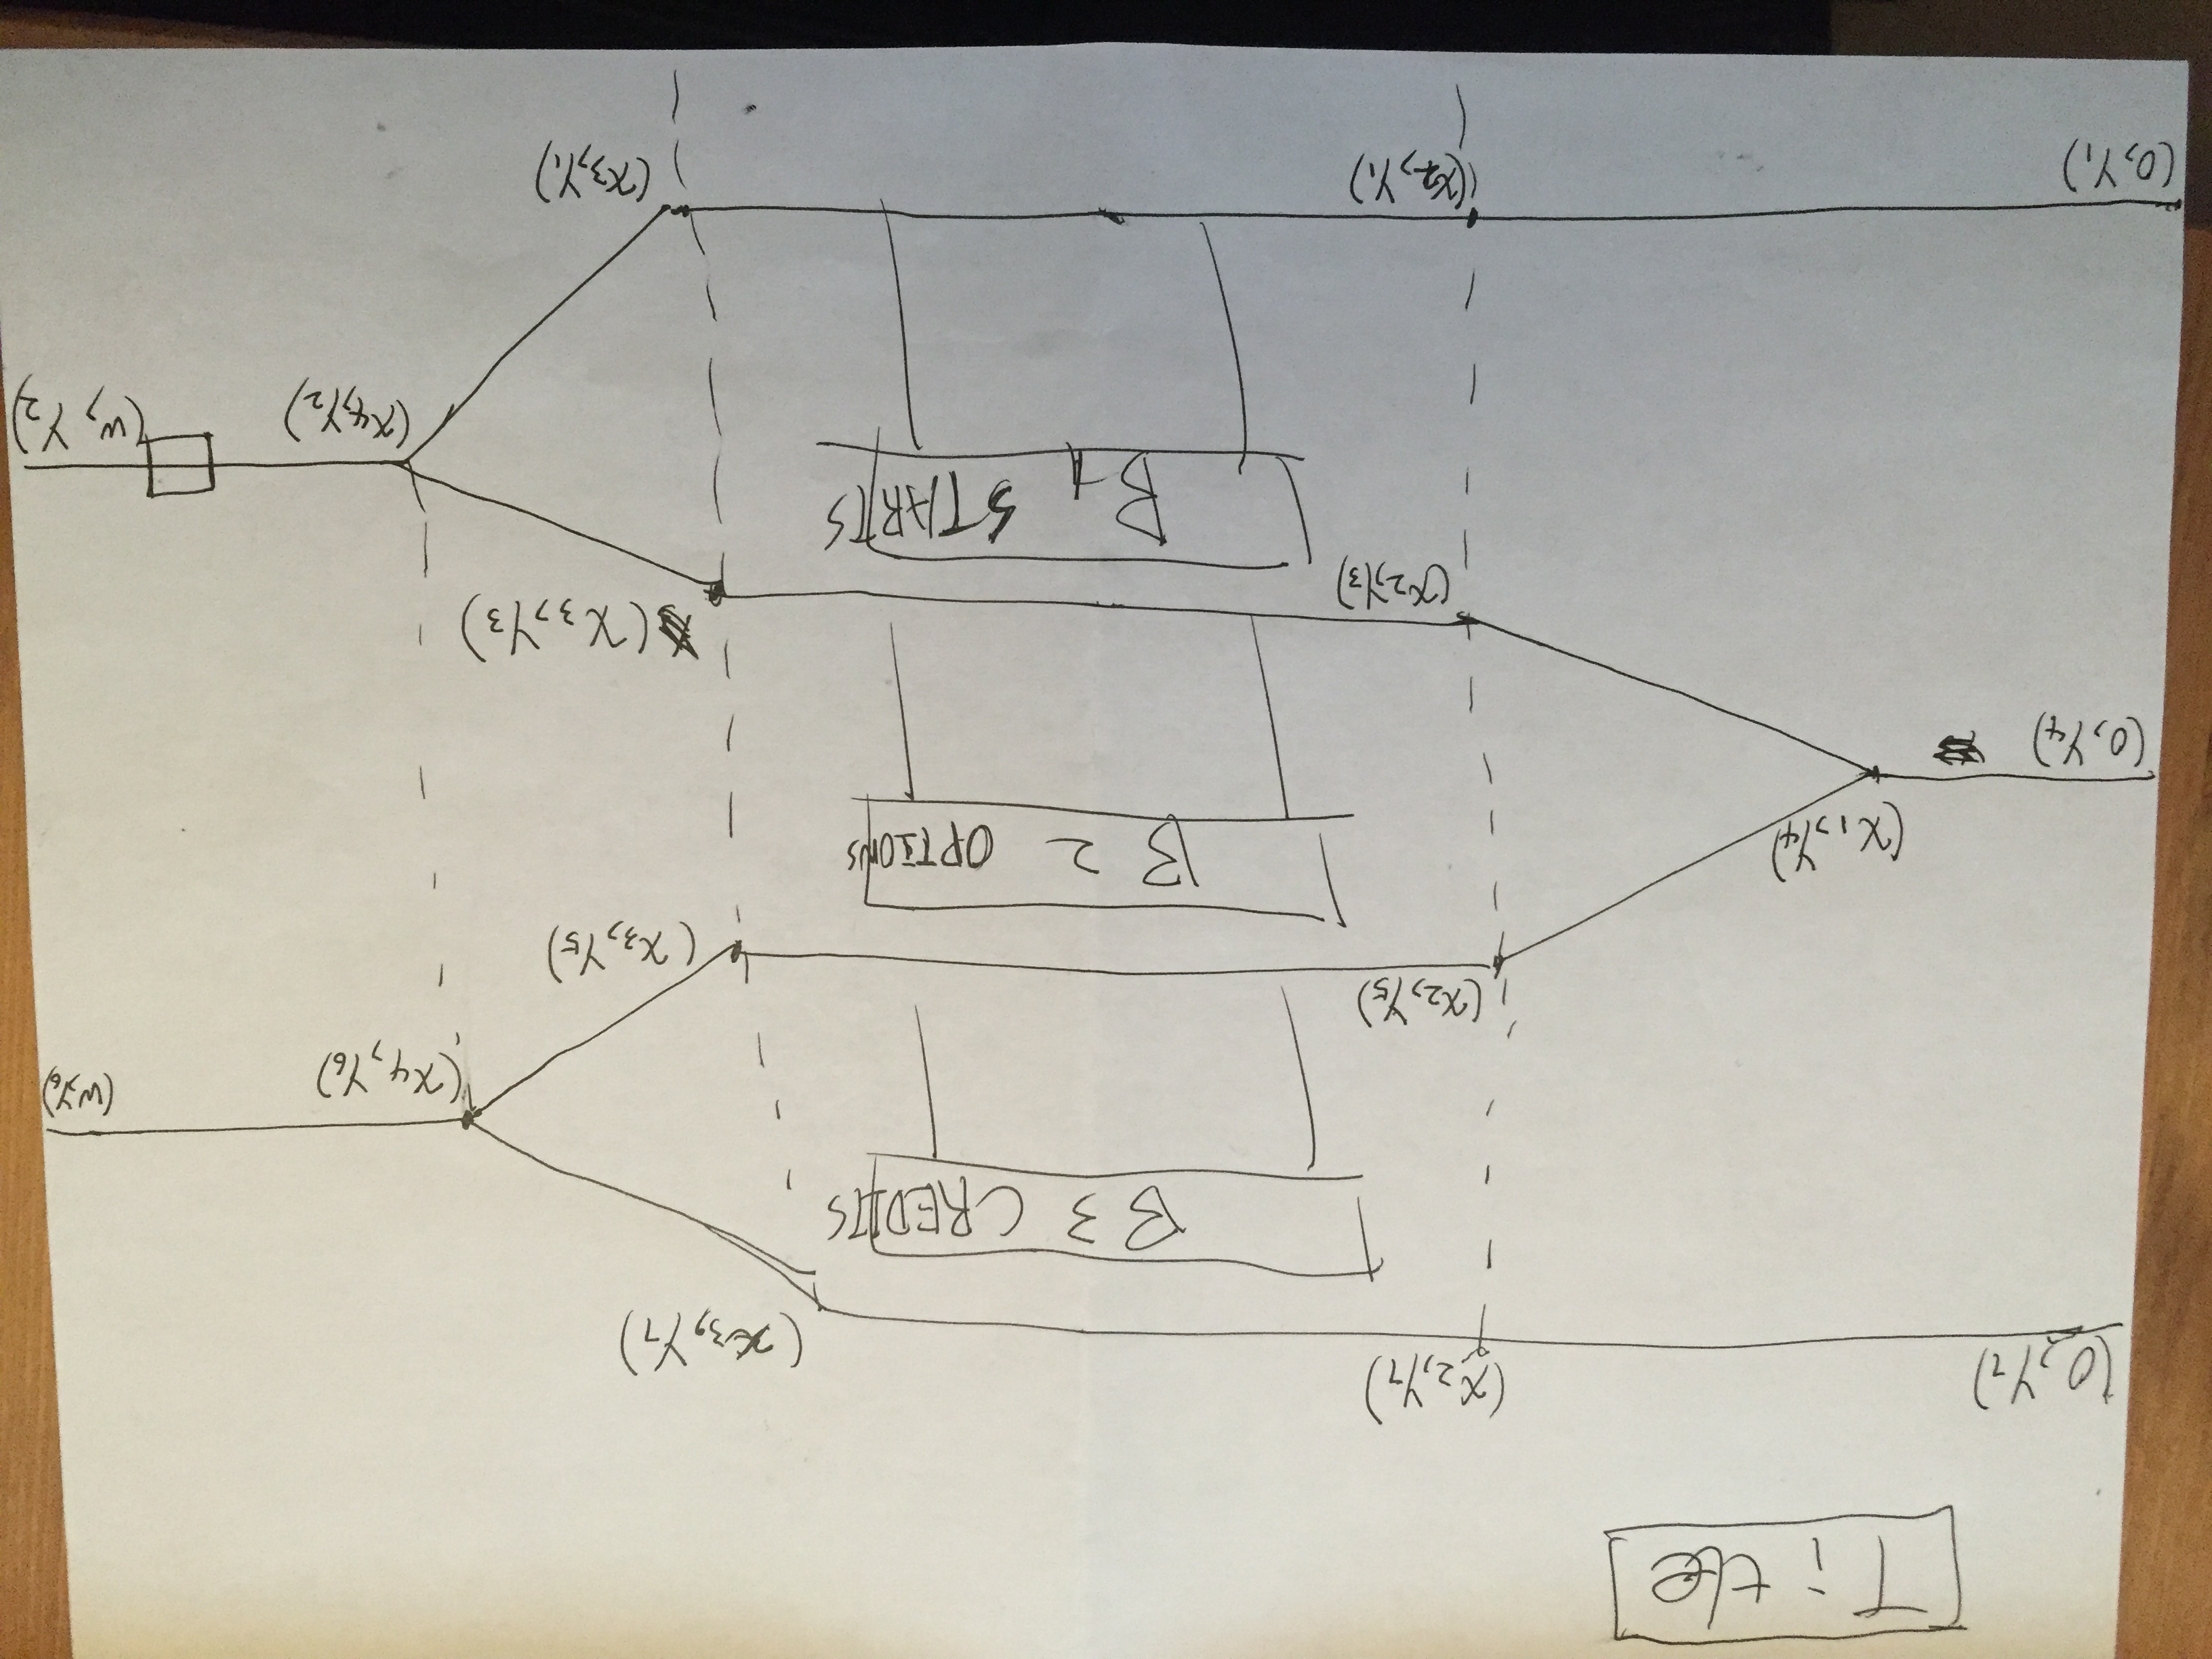 Title
(0,Y7)
(x2,Y7)
(x3,Y7)
B3 CREDITS
(x4,Y6)
(w,Y6)
(x2,Y5)
(x3,Y5)
B2 OPTIONS
(x1,Y4)
(0,Y4)
(x3,Y3)
(x2,Y3)
B1 STARTS
(x4,Y2)
(w,Y2)
(0,Y1)
(x2,Y1)
(x3,Y1)